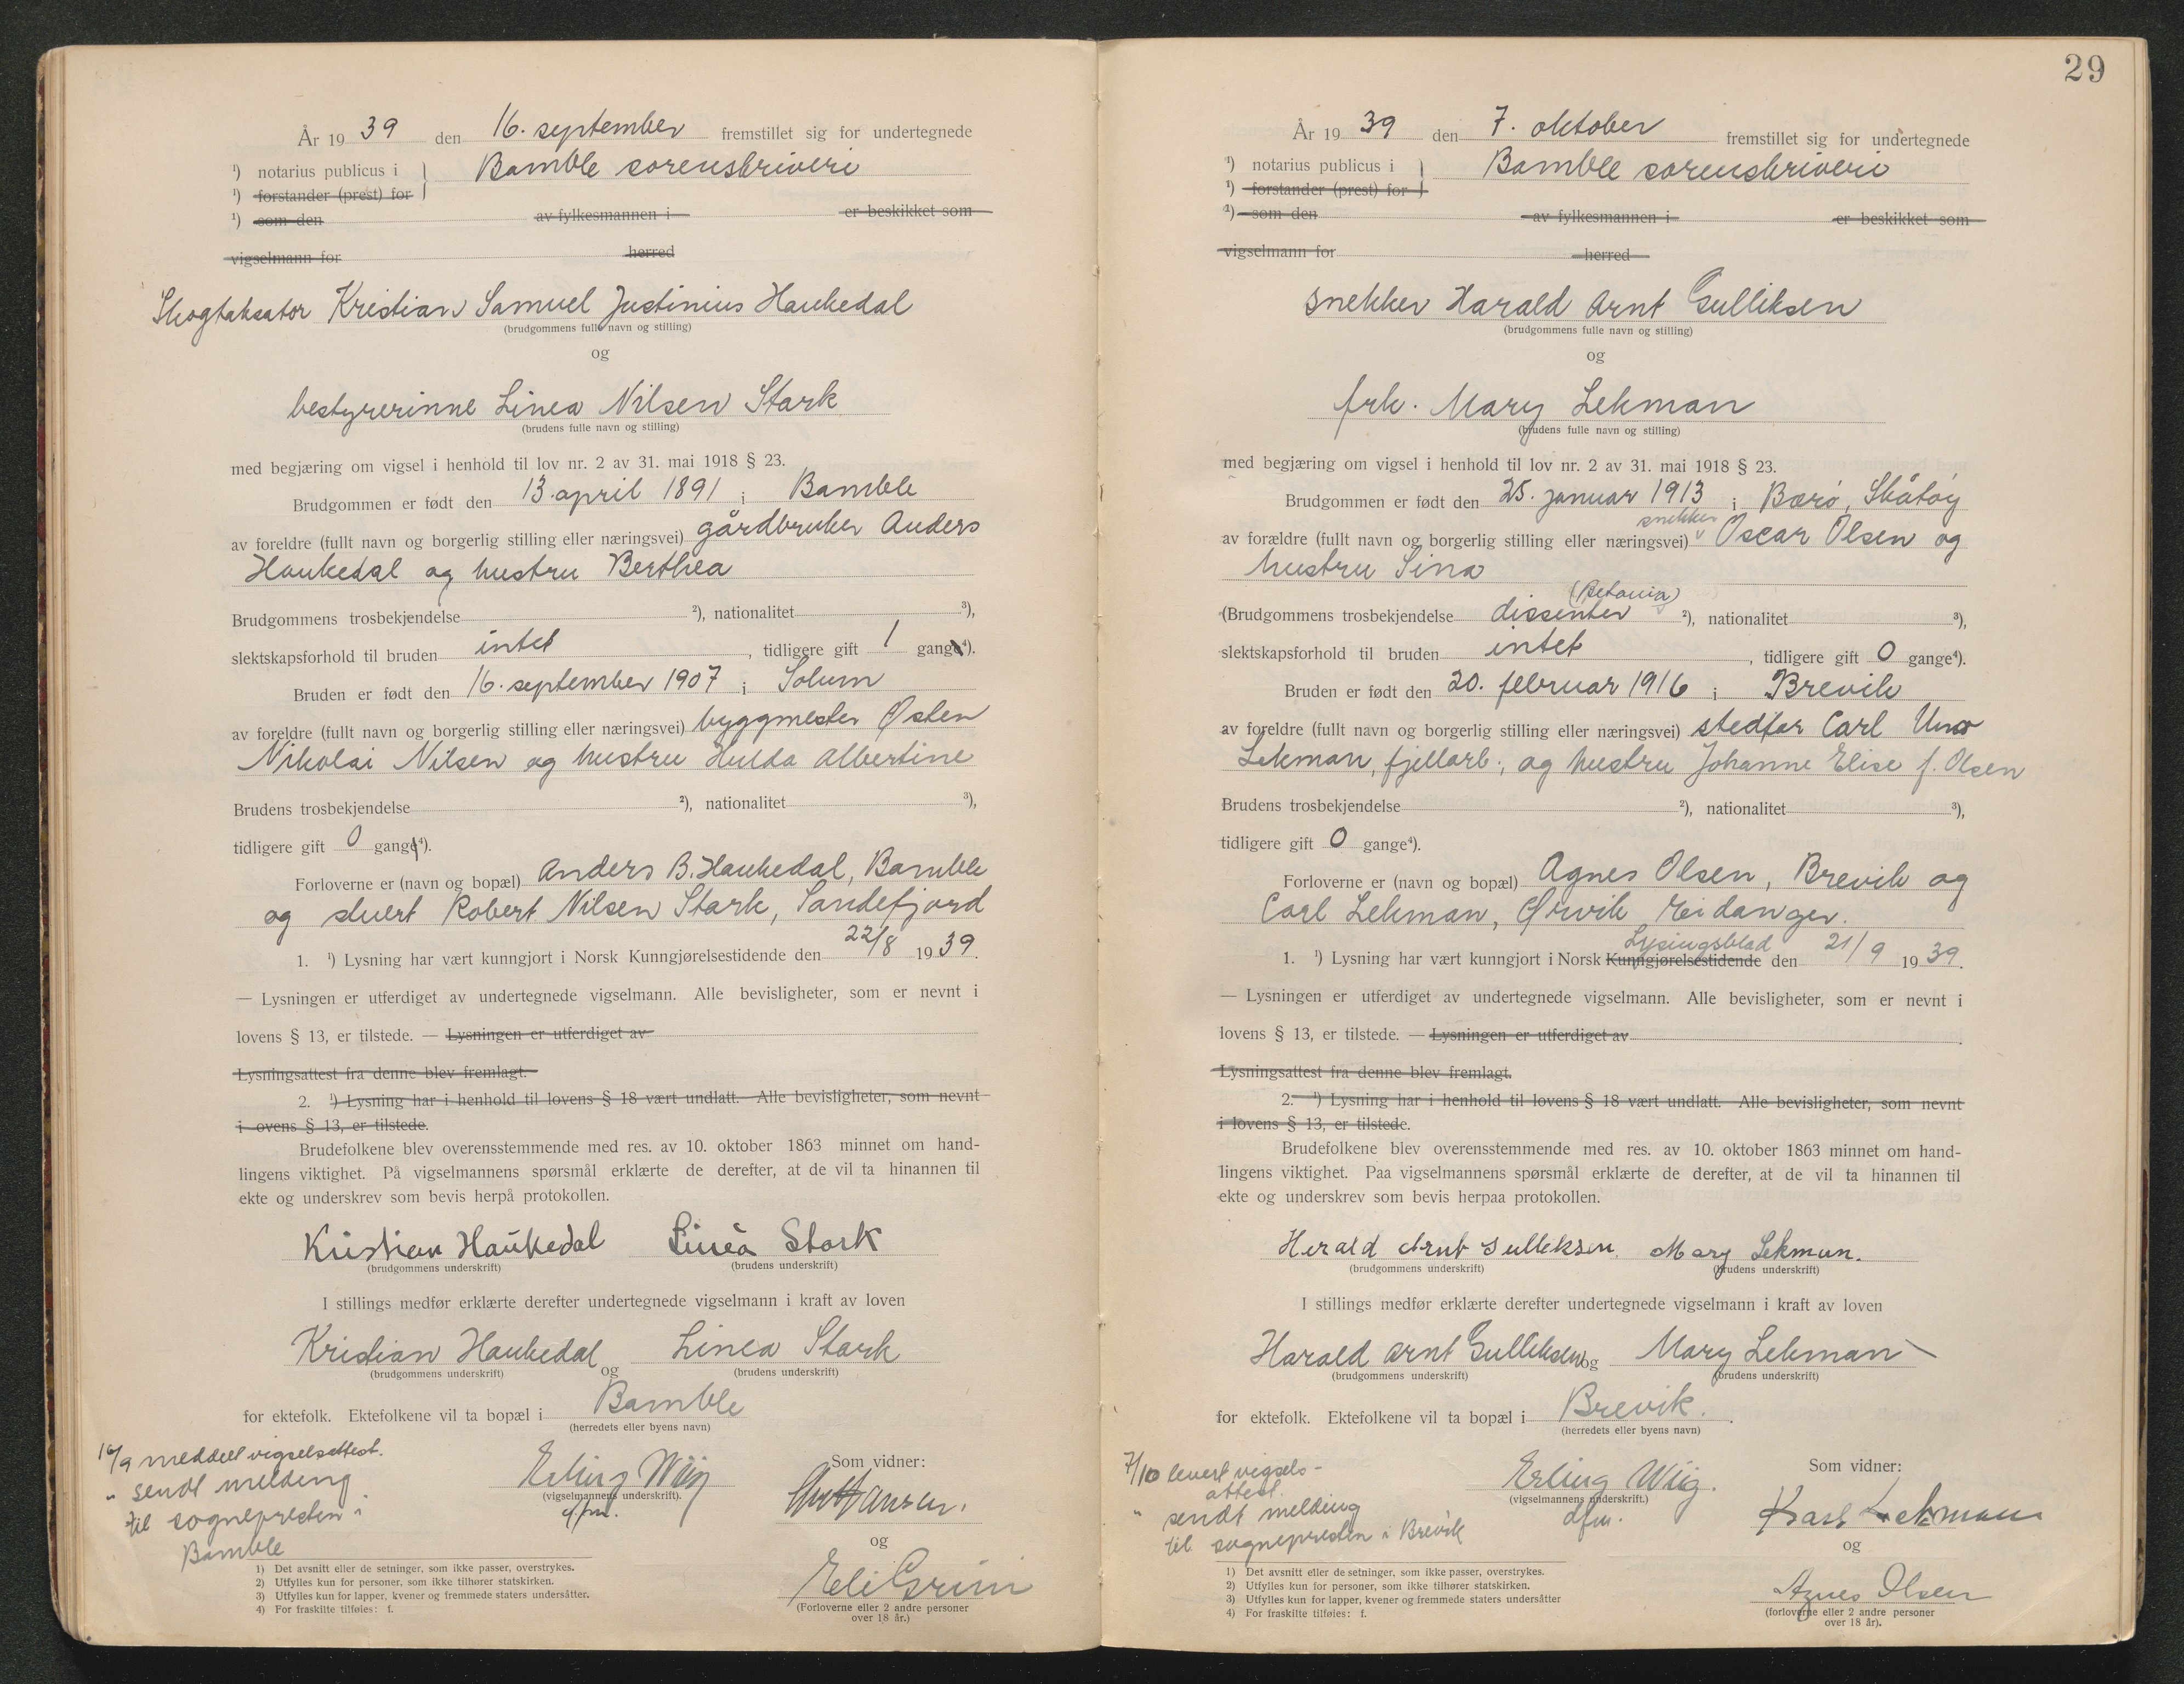 År 1939 den 16. september fremstillet sig for undertegnede
¹) notarius publicus i } Bamble sorenskriveri
¹) forstander (prest) for
¹) som den av fylkesmannen i er beskikket som
vigselmann for herred
Skogtaksator Kristian Samuel Justinius Haukedal
(brudgommens fulle navn og stilling)
og
bestyrerinne Linea Nilsen Stark
(brudens fulle navn og stilling)
med begjæring om vigsel i henhold til lov nr. 2 av 31. mai 1918 § 23.
Brudgommen er født den 13. april 1891 i Bamble
av foreldre (fullt navn og borgerlig stilling eller næringsvei) gårdbruker Anders
Haukedal og hustru Berthea
Brudgommens trosbekjendelse ²), nationalitet ³),
slektskapsforhold til bruden intet, tidligere gift 1 gange⁴).
Bruden er født den 16. september 1907 i Solum
av foreldre (fullt navn og borgerlig stilling eller næringsvei) byggmester Østen
Nikolai Nilsen og hustru Hulda Albertine
Brudens trosbekjendelse ²), nationalitet ³),
tidligere gift 0 gange⁴).
Forloverne er (navn og bopæl) Anders B. Haukedal, Bamble
og stuert Robert Nilsen Stark, Sandefjord
1. ¹) Lysning har vært kunngjort i Norsk Kunngjørelsestidende den 22/8 1939.
— Lysningen er utferdiget av undertegnede vigselmann. Alle bevisligheter, som er nevnt i
lovens § 13, er tilstede. — Lysningen er utferdiget av
Lysningsattest fra denne blev fremlagt.
2. ¹) Lysning har i henhold til lovens § 18 vært undlatt. Alle bevisligheter, som nevnt
i ovens § 13, er tilstede.
Brudefolkene blev overensstemmende med res. av 10. oktober 1863 minnet om hand-
lingens viktighet. På vigselmannens spørsmål erklærte de derefter, at de vil ta hinannen til
ekte og underskrev som bevis herpå protokollen.
Kristian Haukedal Linea Stark
(brudgommens underskrift) (brudens underskrift)
I stillings medfør erklærte derefter undertegnede vigselmann i kraft av loven
Kristian Haukedal og Linea Stark
(brudgommens underskrift) (brudens underskrift)
for ektefolk. Ektefolkene vil ta bopæl i Bamble
(herredets eller byens navn)
16/9 meddelt vigselsattest.
" sendt melding
til sognepresten i
Bamble
Erling Wiig
(vigselmannens underskrift).
dfm.
Som vidner:
Hansen.
og
Eli Grini
(Forloverne eller 2 andre personer
over 18 år.)
1) Det avsnitt eller de setninger, som ikke passer, overstrykes.
2) Utfylles kun for personer, som ikke tilhører statskirken.
3) Utfylles kun for lapper, kvener og fremmede staters undersåtter.
4) For fraskilte tilføies: f.
29
År 1939 den 7. oktober fremstillet sig for undertegnede
¹) notarius publicus i } Bamble sorenskriveri
¹) forstander (prest) for
¹) som den av fylkesmannen i er beskikket som
vigselmann for herred
snekker Harald Arnt Gulliksen
(brudgommens fulle navn og stilling)
og
frk. Mary Lekman
(brudens fulle navn og stilling)
med begjæring om vigsel i henhold til lov nr. 2 av 31. mai 1918 § 23.
Brudgommen er født den 25. januar 1913 i Bærø, Skåtøy
av forældre (fullt navn og borgerlig stilling eller næringsvei) snekker Oscar Olsen og
hustru Sina
(Brudgommens trosbekjendelse dissenter (Betania) ²), nationalitet ³),
slektskapsforhold til bruden intet, tidligere gift 0 gange⁴).
Bruden er født den 20. februar 1916 i Brevik
av foreldre (fullt navn og borgerlig stilling eller næringsvei) stedfar Carl Uno
Lekman, fjellarb., og hustru Johanne Elise f. Olsen
Brudens trosbekjendelse ²), nationalitet ³),
tidligere gift 0 gange⁴).
Forloverne er (navn og bopæl) Agnes Olsen, Brevik og
Carl Lekman, Ørvik, Eidanger.
1. ¹) Lysning har vært kunngjort i Norsk Kunngjørelsestidende Lysingsblad den 21/9 1939.
— Lysningen er utferdiget av undertegnede vigselmann. Alle bevisligheter, som er nevnt i
lovens § 13, er tilstede. — Lysningen er utferdiget av
Lysningsattest fra denne blev fremlagt.
2. ¹) Lysning har i henhold til lovens § 18 vært undlatt. Alle bevisligheter, som nevnt
i lovens § 13, er tilstede.
Brudefolkene blev overensstemmende med res. av 10. oktober 1863 minnet om hand-
lingens viktighet. Paa vigselmannens spørsmål erklærte de derefter, at de vil ta hinannen til
ekte og underskrev som bevis herpaa protokollen.
Harald Arnt Gulleksen. Mary Lekman.
(brudgommens underskrift) (brudens underskrift)
I stillings medfør erklærte derefter undertegnede vigselmann i kraft av loven
Harald Arnt Gulliksen og Mary Lekman
(brudgommens underskrift) (brudens underskrift)
for ektefolk. Ektefolkene vil ta bopæl i Brevik.
(herredets eller byens navn)
7/10 levert vigsels-
attest.
" sendt melding
til sognepresten i Brevik
Erling Wiig.
(vigselmannens underskrift.)
dfm.
Som vidner:
Karl Lekman
og
Agnes Olsen
(forloverne eller 2 andre personer
over 18 år).
1) Det avsnitt eller de setninger, som ikke passer, overstrykes.
2) Utfylles kun for personer, som ikke tilhører statskirken.
3) Utfylles kun for lapper, kvener og fremmede staters undersåtter
4) For fraskilte tilføies: f.